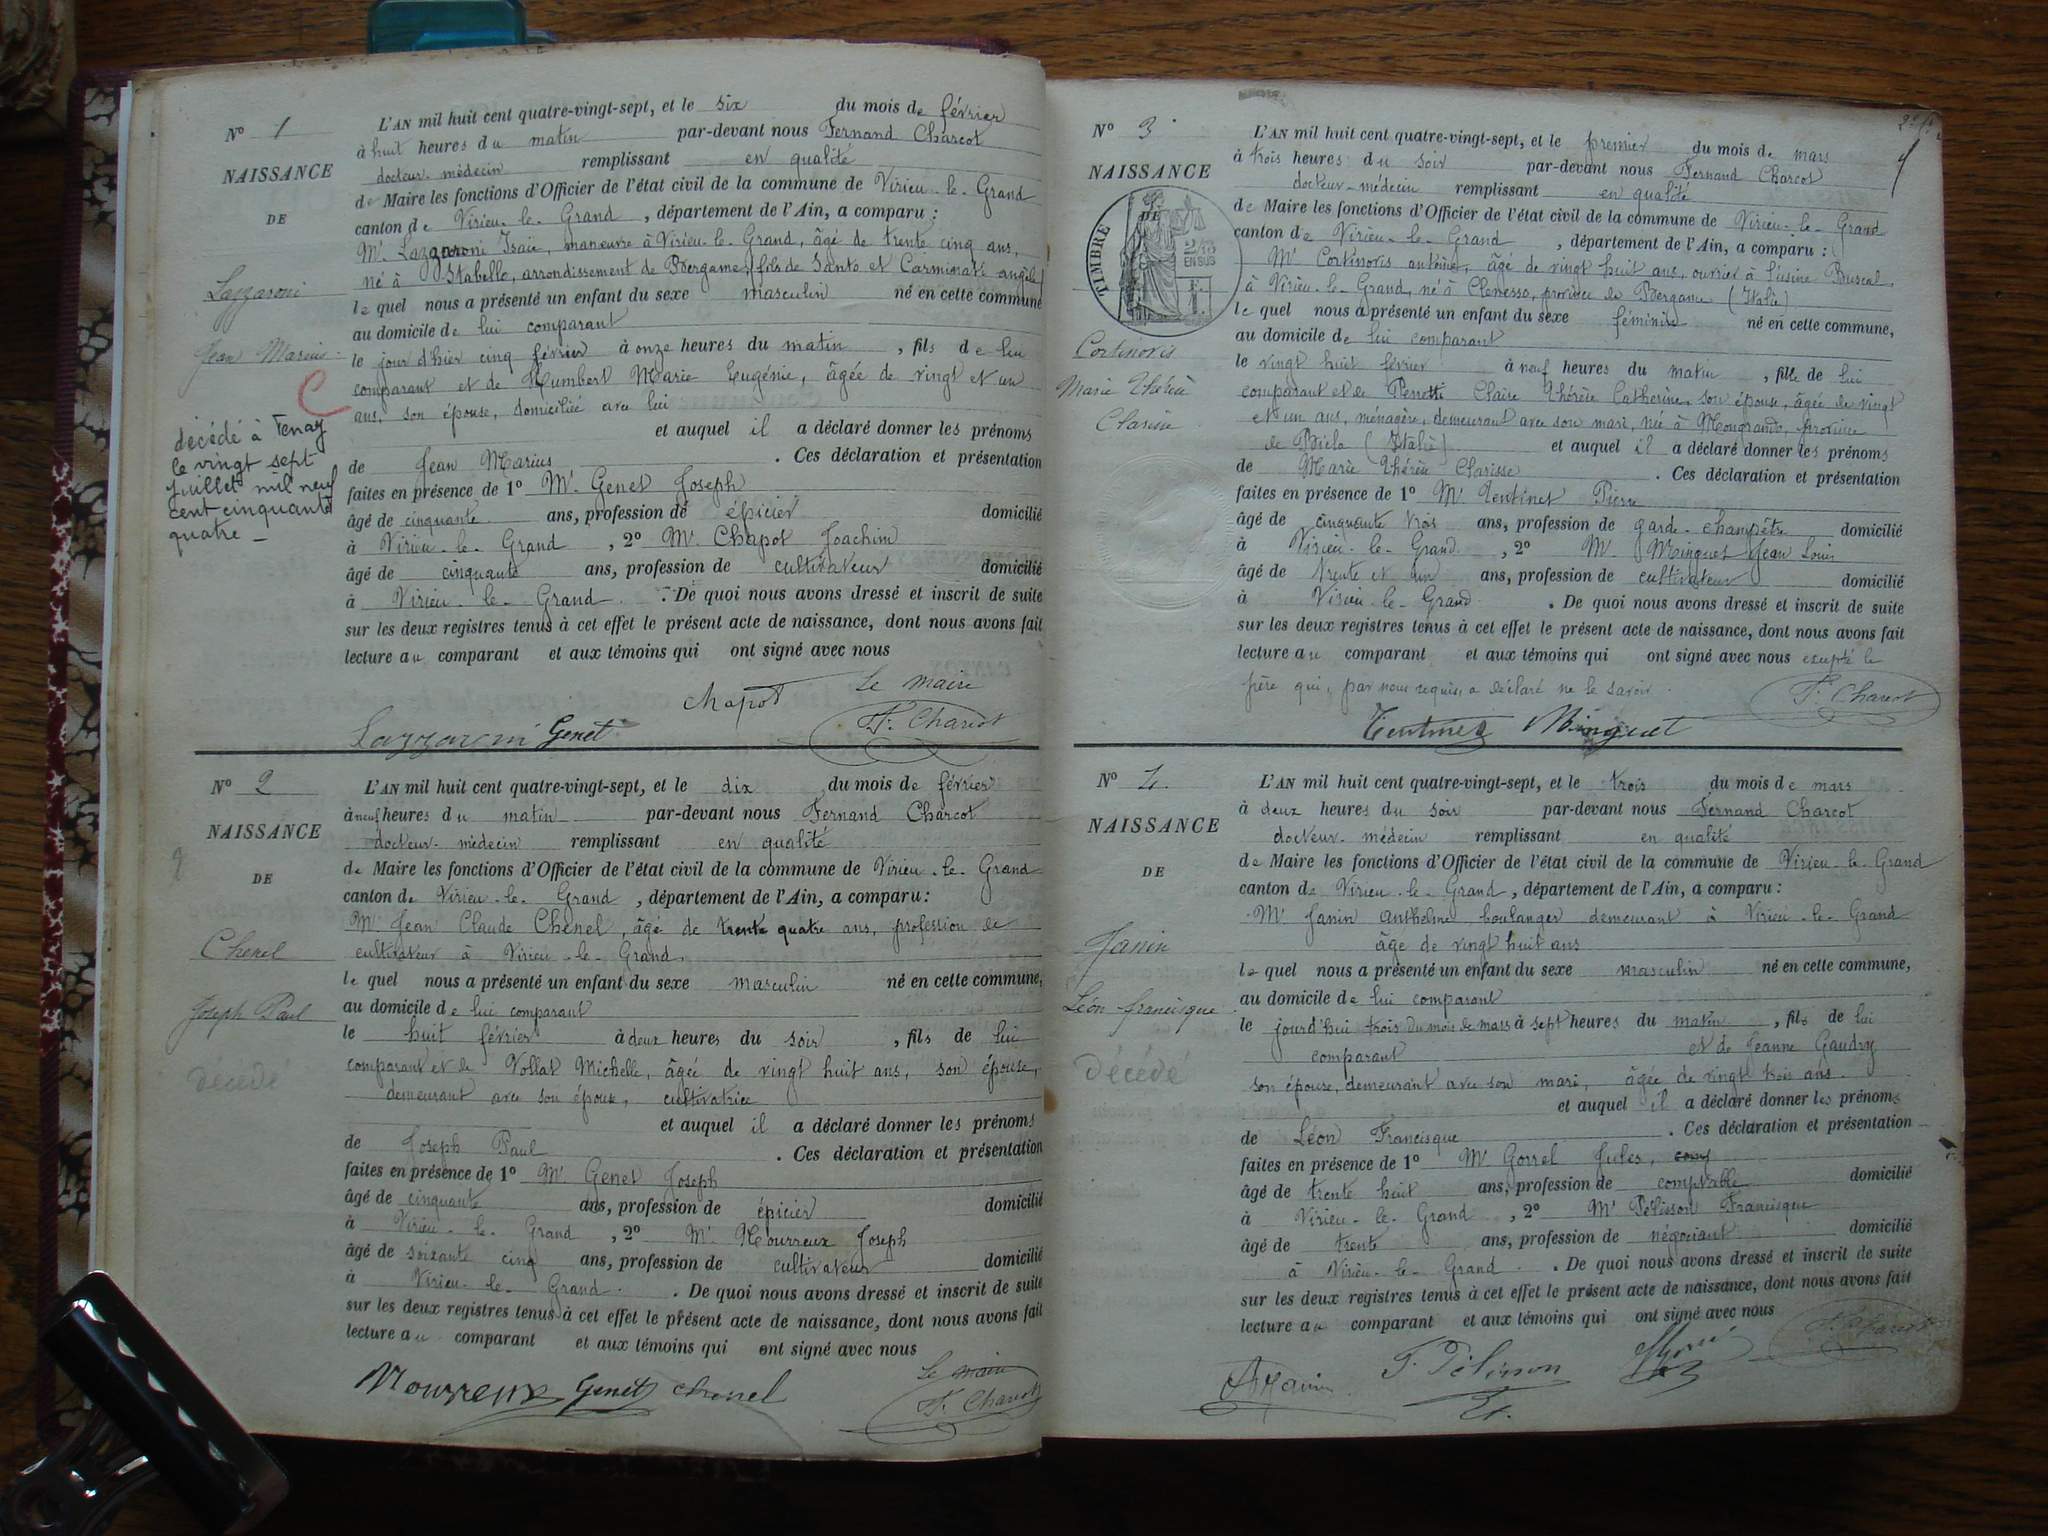 N° 1
NAISSANCE
DE
Lazzaroni
Jean Marius
C
décédé à Tenay
le vingt sept
juillet mil neuf
cent cinquante
quatre _
L'AN mil huit cent quatre-vingt-sept, et le six du mois de février
à huit heures du matin par-devant nous Fernand Charcot
docteur-médecin remplissant en qualité
de Maire les fonctions d'Officier de l'état civil de la commune de Virieu-le-Grand
canton de Virieu-le-Grand, département de l'Ain, a comparu :
Mr Lazzaroni Isaïe, manœuvre à Virieu-le-Grand, âgé de trente cinq ans,
né à Stabello, arrondissement de Bergame, fils de Santo et Carminati
le quel nous a présenté un enfant du sexe masculin né en cette commune
au domicile de lui comparant
le jour d'hier cinq février à onze heures du matin, fils de lui
comparant et de Humbert Marie Eugénie, âgée de vingt et un
ans, son épouse, domiciliée avec lui
et auquel il a déclaré donner les prénoms
de Jean Marius. Ces déclaration et présentation
faites en présence de 1° Mr Genet Joseph
âgé de cinquante ans, profession de épicier domicilié
à Virieu-le-Grand, 2° Mr Chapot Joachim
âgé de cinquante ans, profession de cultivateur domicilié
à Virieu-le-Grand. De quoi nous avons dressé et inscrit de suite
sur les deux registres tenus à cet effet le présent acte de naissance, dont nous avons fait
lecture au comparant et aux témoins qui ont signé avec nous
Chapot Le maire
Lazzaroni Genet F. Charcot
N° 2
NAISSANCE
DE
Chenel
Joseph Paul
décédé
L'AN mil huit cent quatre-vingt-sept, et le dix du mois de février
à neuf heures du matin par-devant nous Fernand Charcot
docteur-médecin remplissant en qualité
de Maire les fonctions d'Officier de l'état civil de la commune de Virieu-le-Grand
canton de Virieu-le-Grand, département de l'Ain, a comparu :
Mr Jean Claude Chenel, âgé de trente quatre ans, profession de
cultivateur à Virieu-le-Grand.
le quel nous a présenté un enfant du sexe masculin né en cette commune,
au domicile de lui comparant
le huit février à deux heures du soir, fils de lui
comparant et de Vollat Michelle, âgée de vingt huit ans, son épouse,
demeurant avec son époux, cultivatrice
et auquel il a déclaré donner les prénoms
de Joseph Paul. Ces déclaration et présentation
faites en présence de 1° Mr Genet Joseph
âgé de cinquante ans, profession de épicier domicilié
à Virieu-le-Grand, 2° Mr Mourreux Joseph
âgé de soixante cinq ans, profession de cultivateur domicilié
à Virieu-le-Grand. De quoi nous avons dressé et inscrit de suite
sur les deux registres tenus à cet effet le présent acte de naissance, dont nous avons fait
lecture au comparant et aux témoins qui ont signé avec nous
Le maire
Mourreux Genet Chenel F. Charcot
N° 3
NAISSANCE
DE
TIMBRE
2/10
EN SUS
Cortinovis
Marie Thérèse
Clarisse
L'AN mil huit cent quatre-vingt-sept, et le premier du mois de mars
à trois heures du soir par-devant nous Fernand Charcot
docteur-médecin remplissant en qualité
de Maire les fonctions d'Officier de l'état civil de la commune de Virieu-le-Grand
canton de Virieu-le-Grand, département de l'Ain, a comparu :
Mr Cortinovis antoine, âgé de vingt huit ans, ouvrier à l'usine
à Virieu-le-Grand, né à Clenesso, province de Bergame (Italie)
le quel nous a présenté un enfant du sexe féminin né en cette commune,
au domicile de lui comparant
le vingt huit février à neuf heures du matin, fille de lui
comparant et de Perrotti Claire Thérèse Catherine, son épouse, âgée de vingt
et un ans, ménagère, demeurant avec son mari, née à Mongrando, province
de Biela (Italie) et auquel il a déclaré donner les prénoms
de Marie Thérèse Clarisse. Ces déclaration et présentation
faites en présence de 1° Mr Tentinet Pierre
âgé de cinquante trois ans, profession de garde-champêtre domicilié
à Virieu-le-Grand, 2° M. Minguet Jean Louis
âgé de trente et un ans, profession de cultivateur domicilié
à Virieu-le-Grand. De quoi nous avons dressé et inscrit de suite
sur les deux registres tenus à cet effet le présent acte de naissance, dont nous avons fait
lecture au comparant et aux témoins qui ont signé avec nous excepté le
père qui, par nous requis, a déclaré ne le savoir. F. Charcot
Tentinet Minguet
N° 4
NAISSANCE
DE
Janin
Léon francisque
décédé
L'AN mil huit cent quatre-vingt-sept, et le trois du mois de mars
à deux heures du soir par-devant nous Fernand Charcot
docteur-médecin remplissant en qualité
de Maire les fonctions d'Officier de l'état civil de la commune de Virieu-le-Grand
canton de Virieu-le-Grand, département de l'Ain, a comparu :
Mr Janin Anthelme boulanger demeurant à Virieu-le-Grand
âgé de vingt huit ans
le quel nous a présenté un enfant du sexe masculin né en cette commune,
au domicile de lui comparant
le jourd'hui trois du mois de mars à sept heures du matin, fils de lui
comparant et de Jeanne Gaudry
son épouse, demeurant avec son mari, âgée de vingt trois ans.
et auquel il a déclaré donner les prénoms
de Léon Francisque. Ces déclaration et présentation
faites en présence de 1° Mr Gorrel Jules,
âgé de trente huit ans, profession de comptable domicilié
à Virieu-le-Grand, 2° Mr Pélisson Francisque
âgé de trente ans, profession de négociant domicilié
à Virieu-le-Grand. De quoi nous avons dressé et inscrit de suite
sur les deux registres tenus à cet effet le présent acte de naissance, dont nous avons fait
lecture au comparant et aux témoins qui ont signé avec nous
F. Charcot
A Janin F. Pélisson